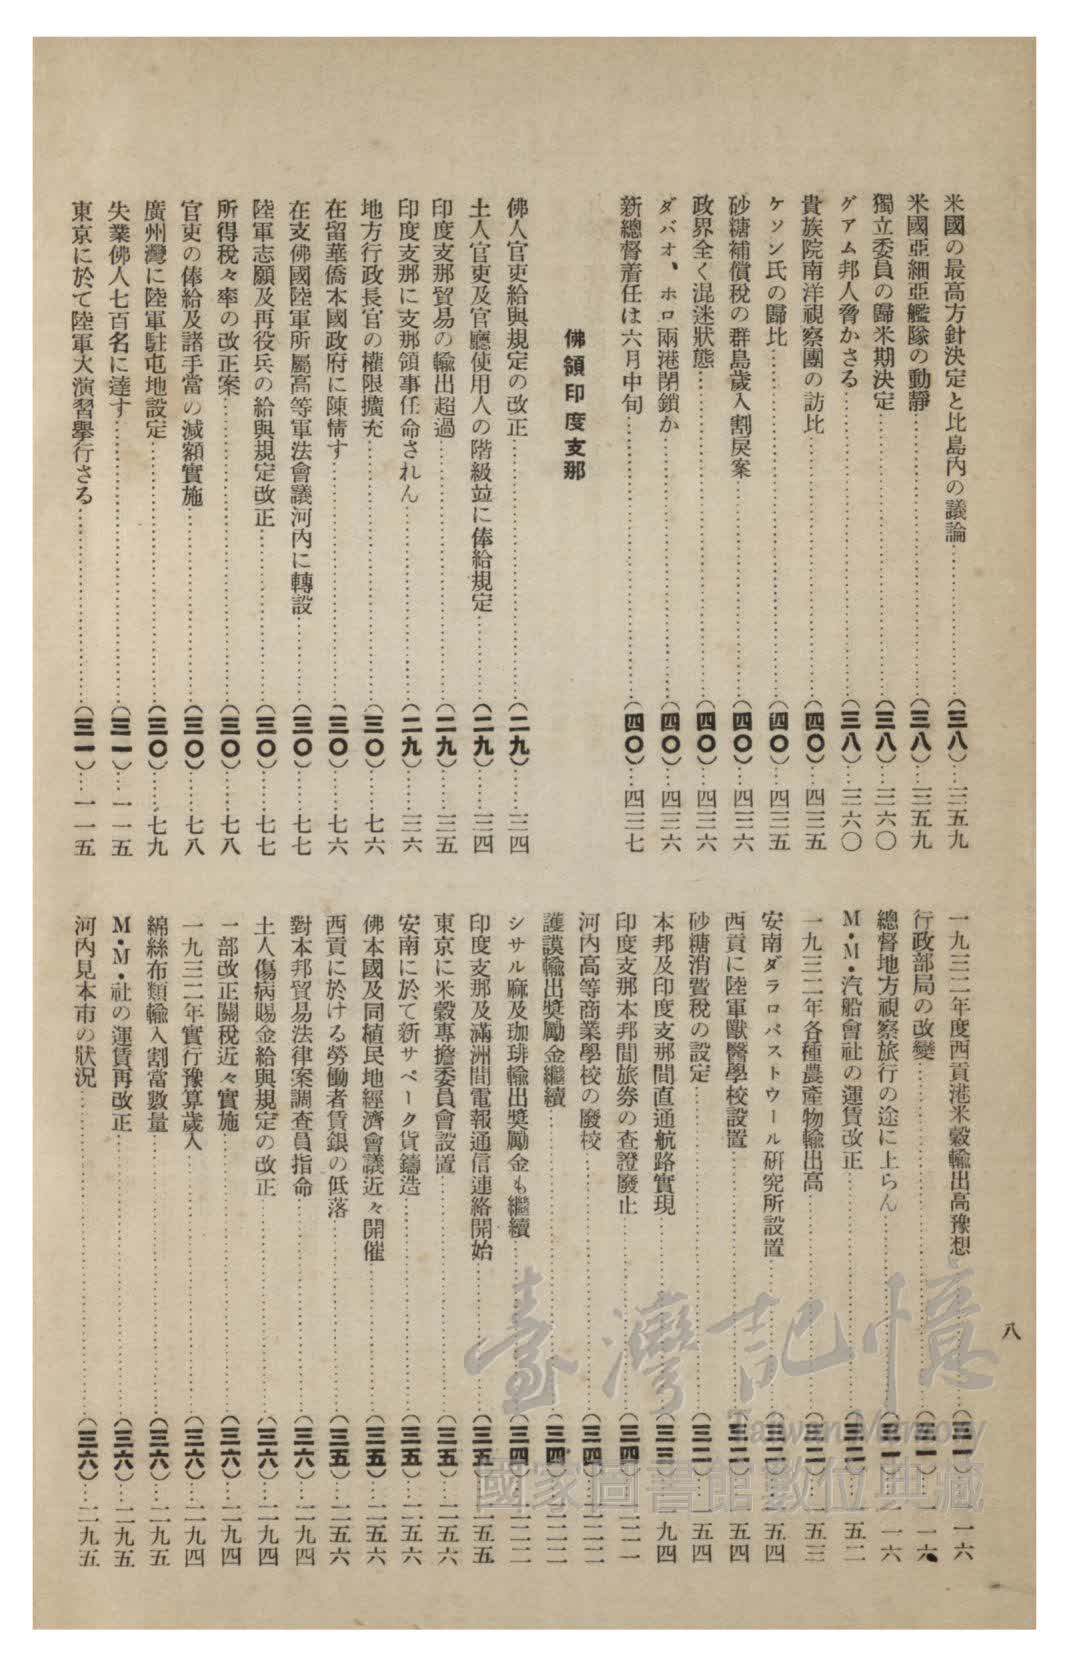 米國の最高方針決定と比島內の議論……………(三八)…三五九
米國亞細亞艦隊の動靜……………(三八)…三五九
獨立委員の歸米期決定……………(三八)…三六〇
グアム邦人脅かさる……………(三八)…三六〇
貴族院南洋視察團の訪比……………(四〇)…四三五
ケソン氏の歸比……………(四〇)…四三五
砂糖補償稅の群島歲入割戾案……………(四〇)…四三六
政界全く混迷狀態……………(四〇)…四三六
ダバオ、ホロ兩港閉鎖か……………(四〇)…四三六
新總督着任は六月中旬……………(四〇)…四三七
佛領印度支那
佛人官吏給與規定の改正……………(二九)…三四
土人官吏及官廳使用人の階級竝に俸給規定……………(二九)…三四
印度支那貿易の輸出超過……………(二九)…三五
印度支那に支那領事任命されん……………(二九)…三六
地方行政長官の權限擴充……………(三〇)…七六
在留華僑本國政府に陳情す……………(三〇)…七六
在支佛國陸軍所屬高等軍法會議河內に轉設……………(三〇)…七七
陸軍志願及再役兵の給與規定改正……………(三〇)…七七
所得稅々率の改正案……………(三〇)…七八
官吏の俸給及諸手當の減額實施……………(三〇)…七八
廣州灣に陸軍駐屯地設定……………(三〇)…七九
失業佛人七百名に達す……………(三一)…一一五
東京に於て陸軍大演習擧行さる……………(三一)…一一五
一九三二年度西貢港米穀輸出高豫想……………(三一)…一一六
行政部局の改變……………(三一)…一一六
總督地方視察旅行の途に上らん……………(三一)…一一六
M・M・汽船會社の運賃改正……………(三二)…一五二
一九三二年各種農產物輸出高……………(三二)…一五三
安南ダラロパストウール硏究所設置……………(三二)…一五四
西貢に陸軍獸醫學校設置……………(三二)…一五四
砂糖消費稅の設定……………(三二)…一五四
本邦及印度支那間直通航路實現……………(三三)…一九四
印度支那本邦間旅券の査證廢止……………(三四)…二二一
河內高等商業學校の廢校……………(三四)…二二二
護謨輸出奬勵金繼續……………(三四)…二二二
シサル麻及珈琲輸出奬勵金も繼續……………(三四)…二二二
印度支那及滿洲間電報通信連絡開始……………(三五)…二五五
東京に米穀專擔委員會設置……………(三五)…二五六
安南に於て新サペーク貨鑄造……………(三五)…二五六
佛本國及同植民地經濟會議近々開催……………(三五)…二五六
西貢に於ける勞働者賃銀の低落……………(三五)…二五六
對本邦貿易法律案調査員指命……………(三六)…二九四
土人傷病賜金給與規定の改正……………(三六)…二九四
一部改正關稅近々實施……………(三六)…二九四
一九三二年實行豫算歲入……………(三六)…二九四
綿絲布類輸入割當數量……………(三六)…二九五
M・M・社の運賃再改正……………(三六)…二九五
河內見本市の狀況……………(三六)…二九五
八
臺灣記憶
Taiwan Memory
國家圖書館數位典藏